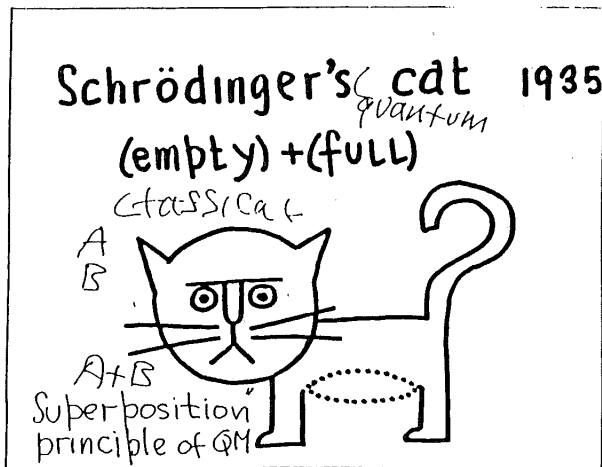 Schrödinger's cat 1935
quantum
(empty) + (fULL)
classical
A
B
A+B
"Superposition"
principle of QM